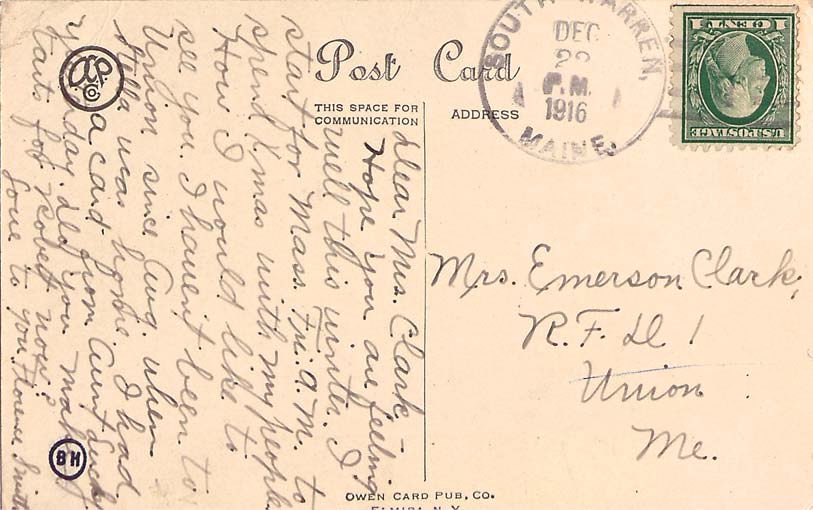 Post Card
THIS SPACE FOR
COMMUNICATION
ADDRESS
SOUTH WARREN,
DEC
P.M.
1916
MAINE.
U.S. POSTAGE
1 CENT 1
Dear Mrs. Clark -
Hope you are feeling
well this winter. I
start for Mass. Fri. A.M. to
spend Xmas with my people
How I would like to
see you. I haven't been to
Union since Aug. when
Stella was home. I had
a card from Aunt
yesterday. Did you make
for Robert now?
Love to you Florence Smith
Mrs. Emerson Clark,
R.F.D. 1
Union
Me.
BH
OWEN CARD PUB. CO.
ELMIRA N.Y.